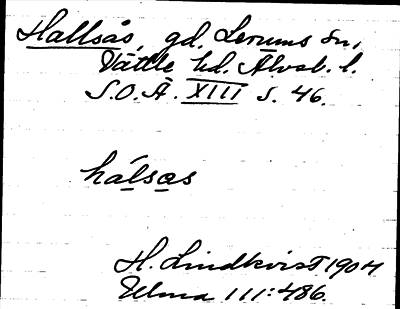 Hallsås, gd, Lerums sn,
Vättle hd. Älvsb. l.
S.O.Ä. XIII s. 46.
hálsas
H. Lindkvist 1904
Ulma 111:486.